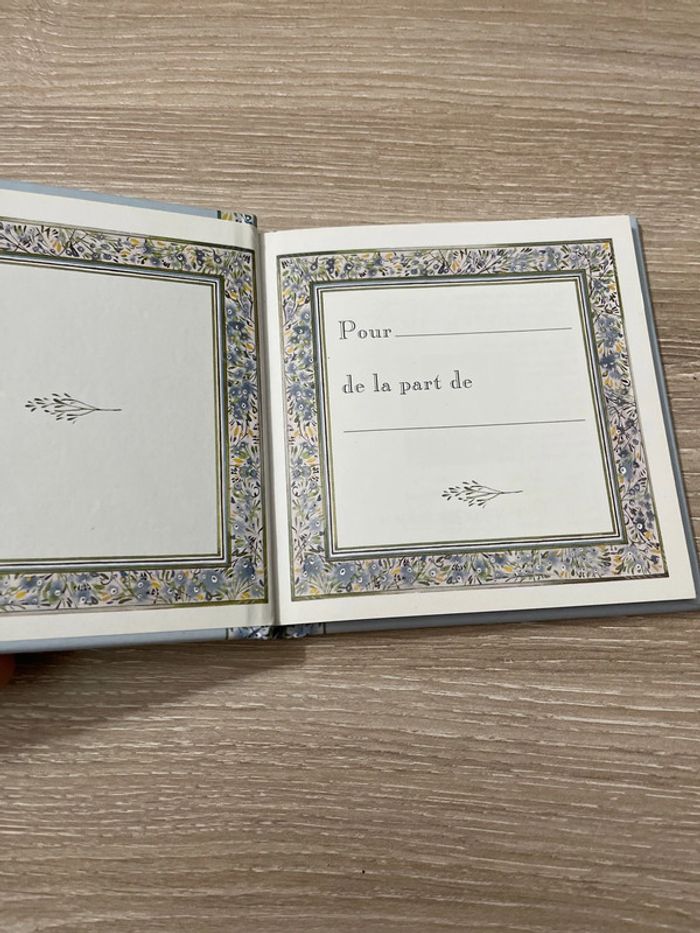 Pour
de la part de